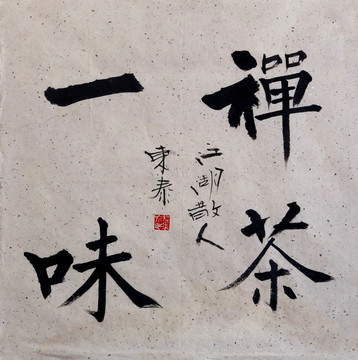 禪茶
一味
江湖散人
東泰